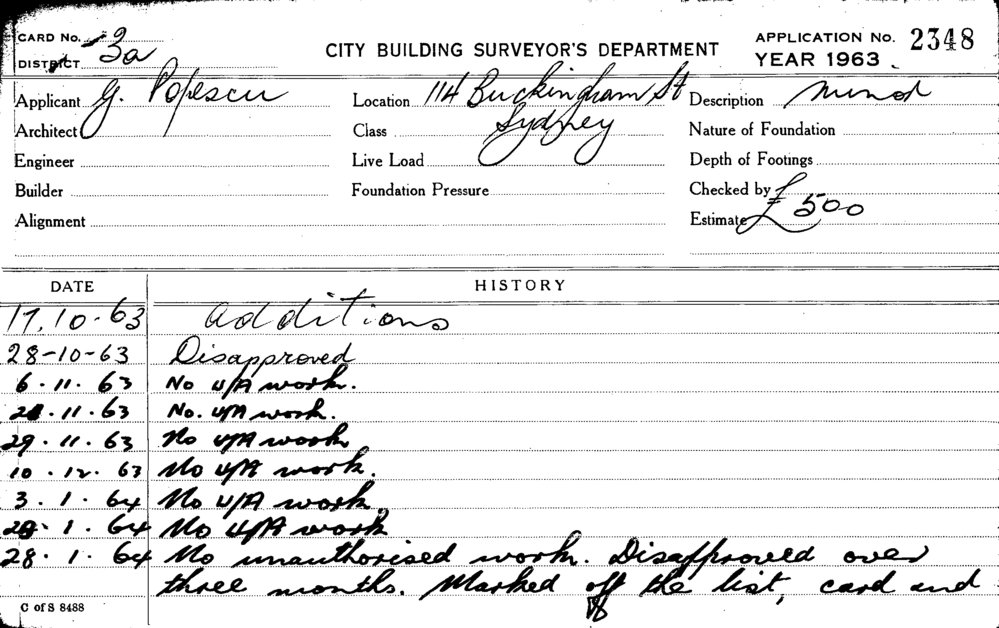 CARD No. 3a
DISTRICT
CITY BUILDING SURVEYOR'S DEPARTMENT
APPLICATION No. 2348
YEAR 1963
Applicant G. Popescu
Location 114 Buckingham St
Sydney
Description
Architect
Class
Nature of Foundation
Engineer
Live Load
Depth of Footings
Builder
Foundation Pressure
Checked by
Alignment
Estimate £500
DATE HISTORY
17.10.63 Additions
28-10-63 Disapproved
6.11.63 No U/A work.
.11.63 No. U/A work.
29.11.63 No U/A work
10.12.63 No U/A work.
3.1.64 No U/A work.
.1.64 No U/A work
28.1.64 No unauthorised work. Disapproved over
three months. Marked off the list, card and
C of S 8488